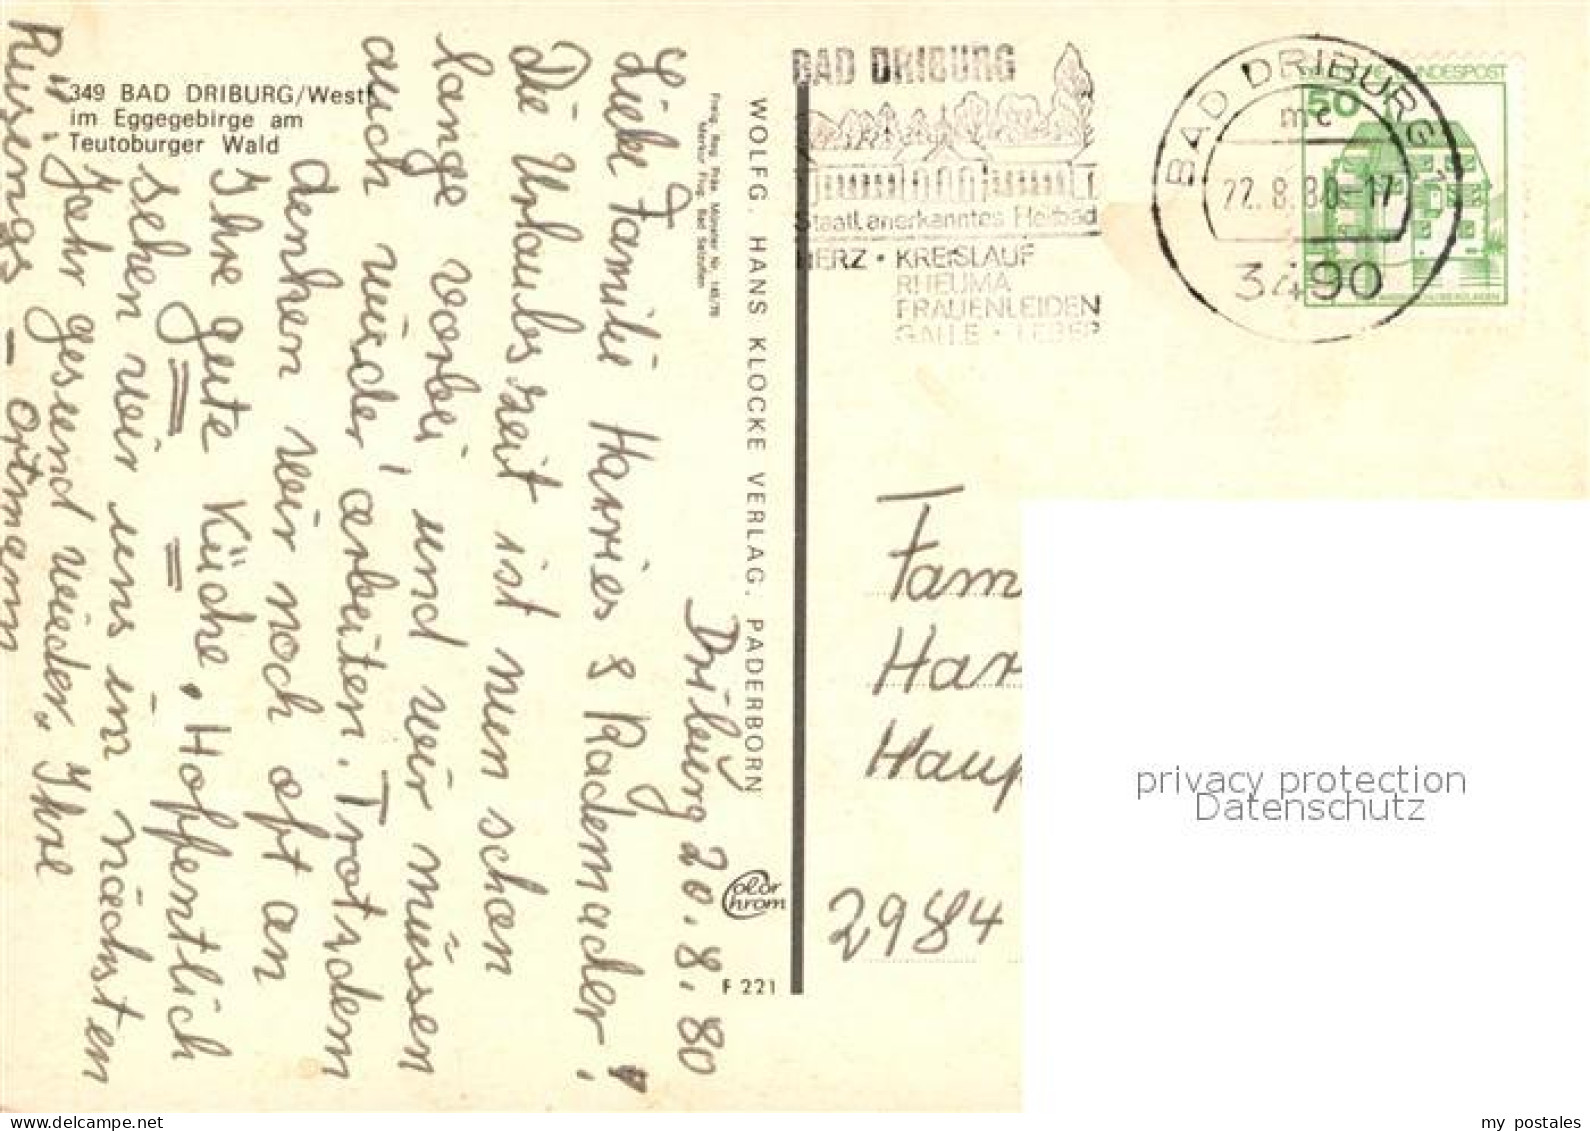 349 BAD DRIBURG/Westf.
im Eggegebirge am
Teutoburger Wald
Driburg 20.8.80
Liebe Familie Harries & Rademacher!
Die Urlaubszeit ist nun schon
lange vorbei, und wir müssen
auch wieder arbeiten. Trotzdem
denken wir noch oft an
Ihre gute Küche. Hoffentlich
sehen wir uns im nächsten
Jahr gesund wieder, Ihre
Rüsings - Ortmann
WOLFG. HANS KLOCKE VERLAG. PADERBORN
Color
Chrom
F 221
BAD DRIBURG
Staatl. anerkanntes Heilbad
HERZ • KREISLAUF
RHEUMA
FRAUENLEIDEN
GALLE • LEBER
BAD DRIBURG 1
mc
22.8.80-17
3490
BUNDESPOST
50
Fam
Har
Haup
2984
privacy protection
Datenschutz
my postales